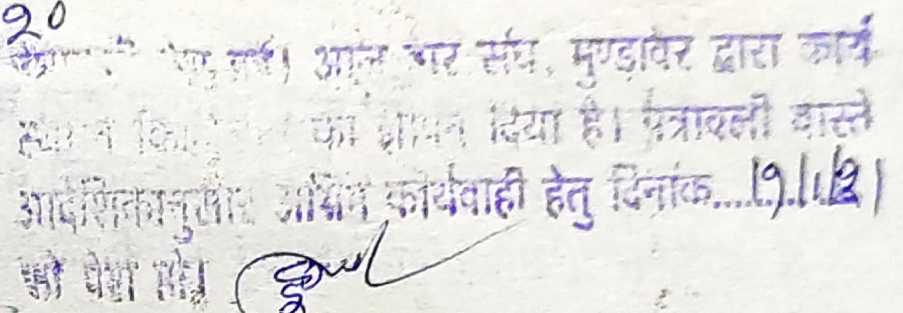 20
पेश हुई। आज बार संघ, मुण्डावर द्वारा कार्य
स्थगन का ज्ञापन दिया है। पत्रावली वास्ते
आदेशिकानुसार अग्रिम कार्यवाही हेतु दिनांक....19/1/21
को पेश हो।